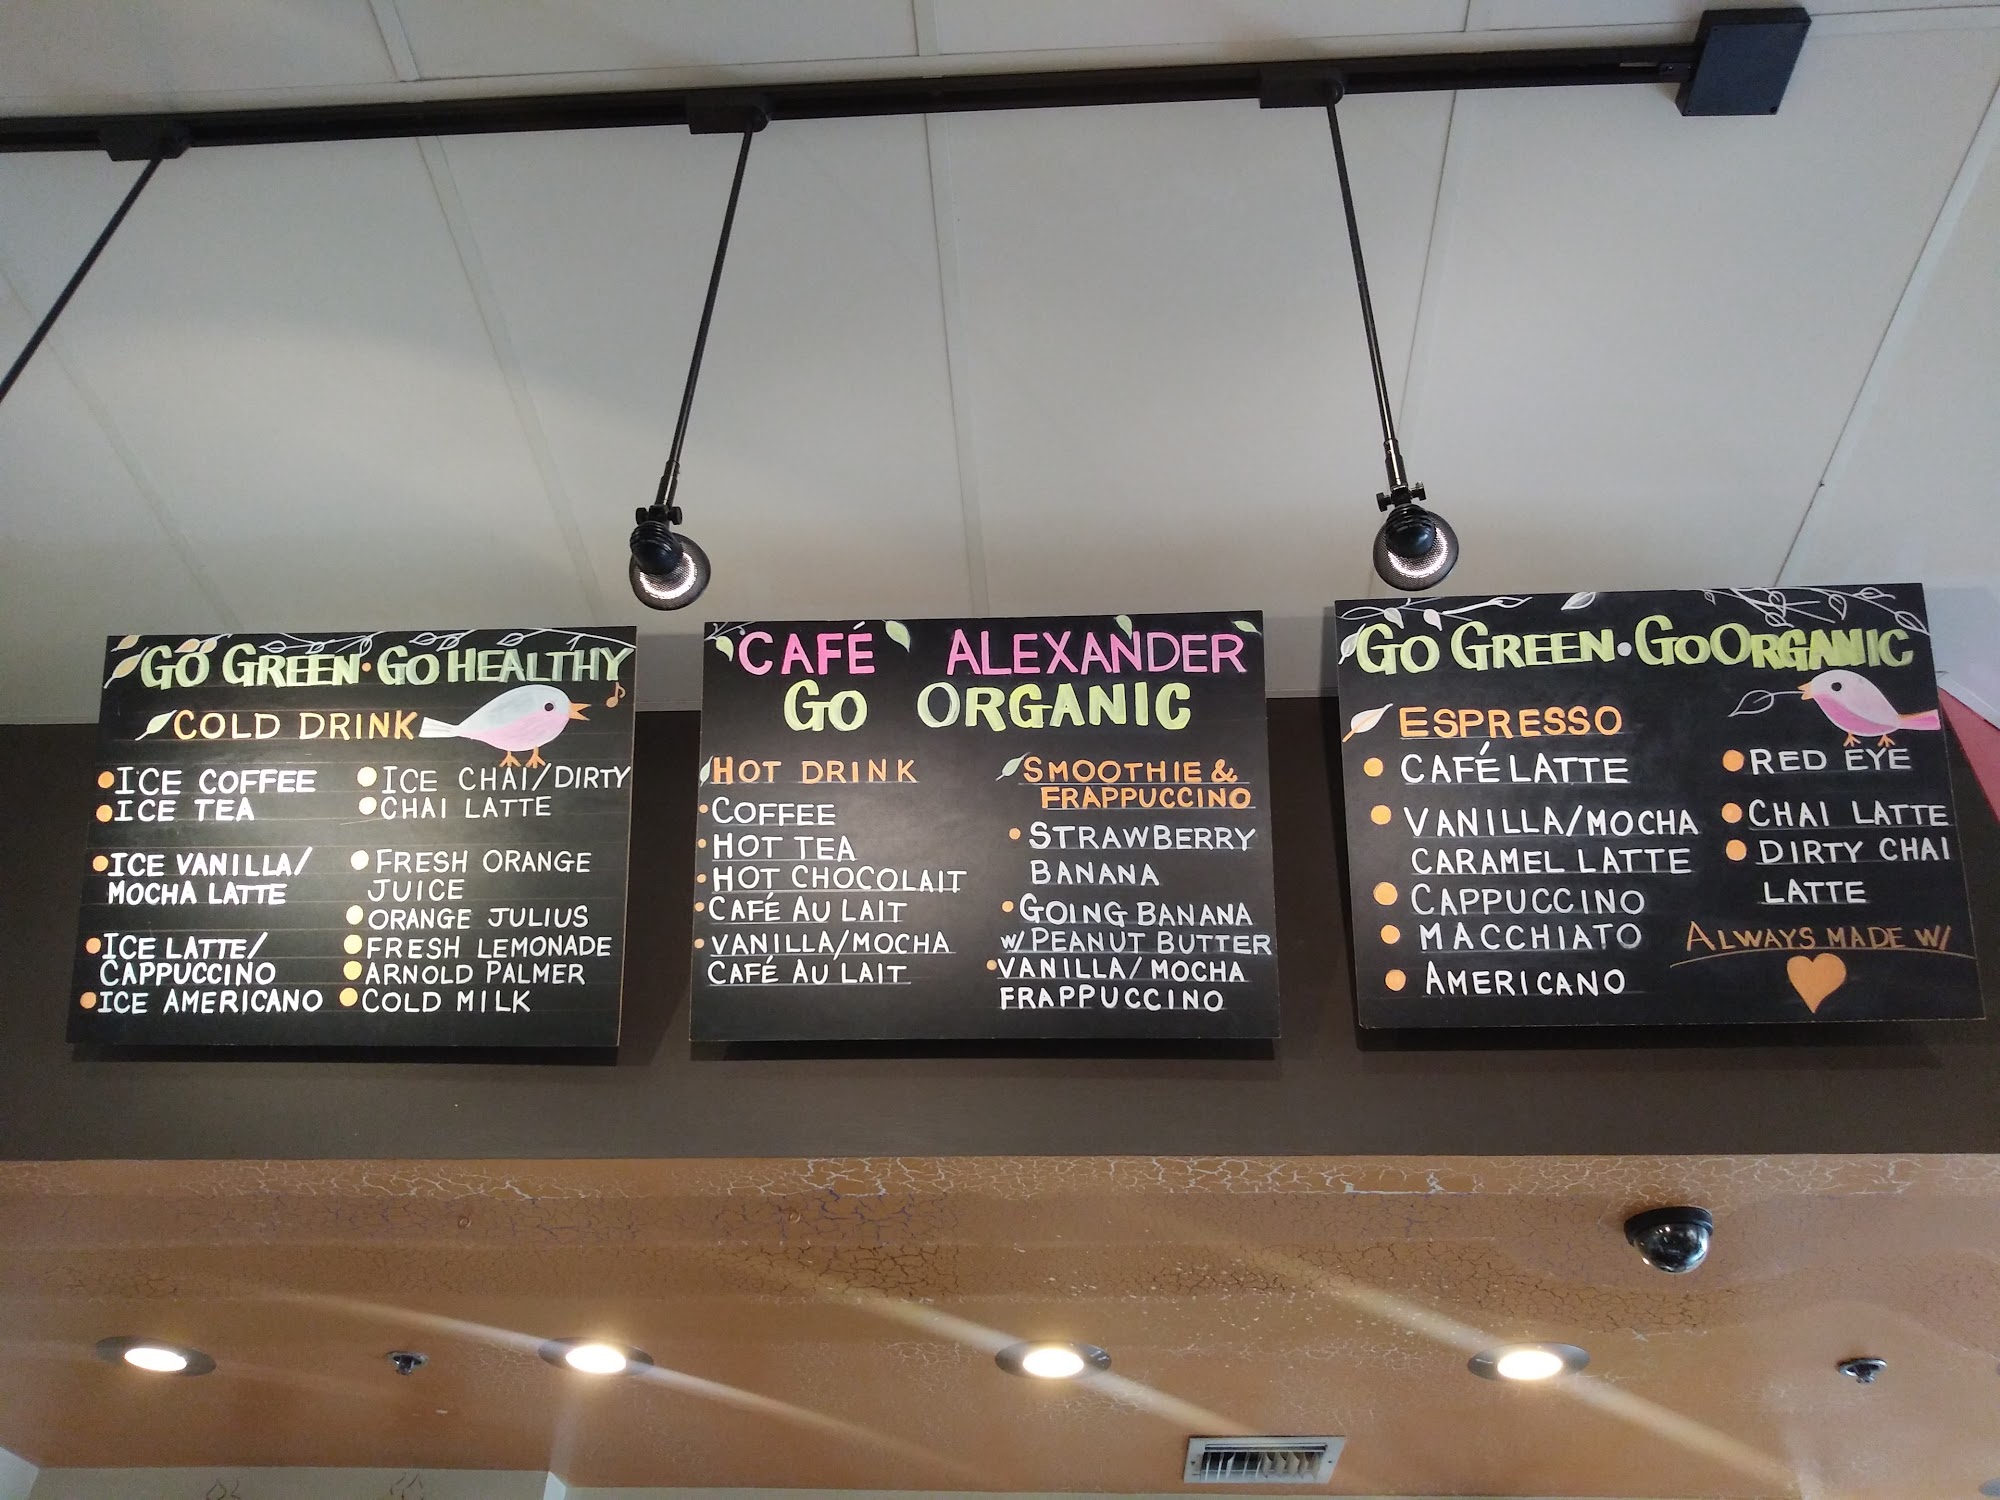 GO GREEN • GO HEALTHY
COLD DRINK
ICE COFFEE
ICE TEA
ICE VANILLA/
MOCHA LATTE
ICE LATTE/
CAPPUCCINO
ICE AMERICANO
ICE CHAI/DIRTY
CHAI LATTE
FRESH ORANGE
JUICE
ORANGE JULIUS
FRESH LEMONADE
ARNOLD PALMER
COLD MILK
CAFÉ ALEXANDER
GO ORGANIC
HOT DRINK
COFFEE
HOT TEA
HOT CHOCOLAIT
CAFÉ AU LAIT
VANILLA/MOCHA
CAFÉ AU LAIT
SMOOTHIE &
FRAPPUCCINO
STRAWBERRY
BANANA
GOING BANANA
W/ PEANUT BUTTER
VANILLA/MOCHA
FRAPPUCCINO
GO GREEN • GO ORGANIC
ESPRESSO
CAFÉ LATTE
VANILLA/MOCHA
CARAMEL LATTE
CAPPUCCINO
MACCHIATO
AMERICANO
RED EYE
CHAI LATTE
DIRTY CHAI
LATTE
ALWAYS MADE W/